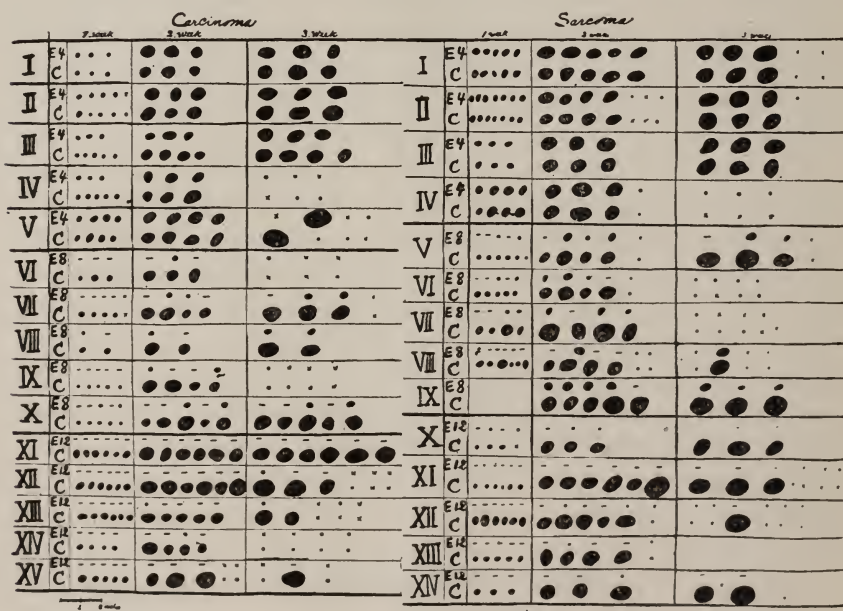 Carcinoma
1. week 2. week 3. week
I E4
C
II E4
C
III E4
C
IV E4
C
V E4
C
VI E8
C
VII E8
C
VIII E8
C
IX E8
C
X E8
C
XI E12
C
XII E12
C
XIII E12
C
XIV E12
C
XV E12
C
Sarcoma
1 week 2 week 3 week
I E4
C
II E4
C
III E4
C
IV E4
C
V E8
C
VI E8
C
VII E8
C
VIII E8
C
IX E8
C
X E12
C
XI E12
C
XII E12
C
XIII E12
C
XIV E12
C